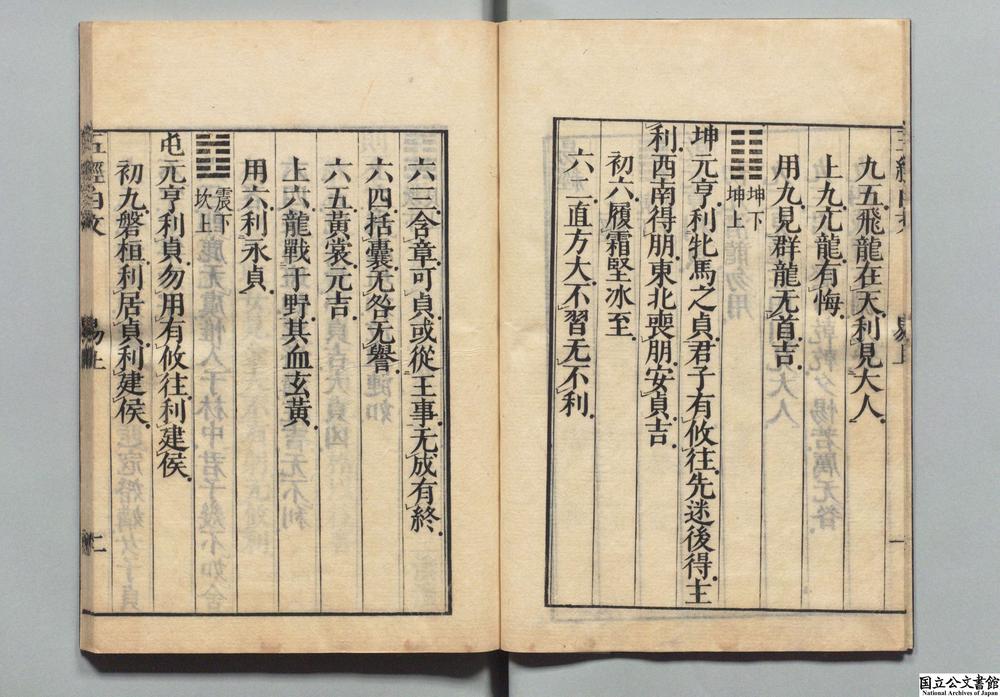 九五飛龍在天利見大人
上九亢龍有悔
用九見群龍无首吉
䷁坤下坤上
坤元亨利牝馬之貞君子有攸往先迷後得主
利西南得朋東北喪朋安貞吉
初六履霜堅冰至
六二直方大不習无不利
六三含章可貞或從王事无成有終
六四括囊无咎无譽
六五黃裳元吉
上六龍戰于野其血玄黃
用六利永貞
䷂震下坎上
屯元亨利貞勿用有攸往利建侯
初九磐桓利居貞利建侯
五經白文
易上
二
国立公文書館
National Archives of Japan